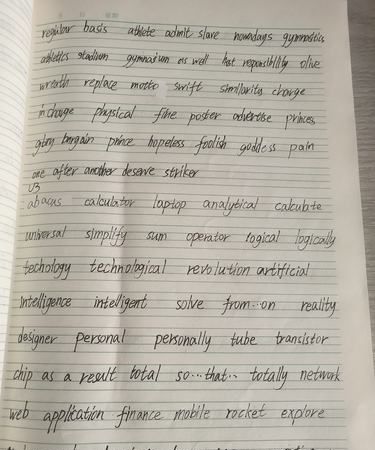 regular basis athlete admit slave nowadays gymnastics
athletics stadium gymnasium as well host reponsibility olive
wreath replace motto swift similarity charge
in charge physical fine poster advertise princes
glory bargain prince hopeless foolish goddess pain
one after another deserve striker
U3
abacus calculator laptop analytical calculate
universal simplify sum operator logical logically
techology technological revolution artificial
intelligence intelligent solve from...on reality
designer personal personally tube transistor
chip as a result total so...that... totally network
web application finance mobile rocket explore